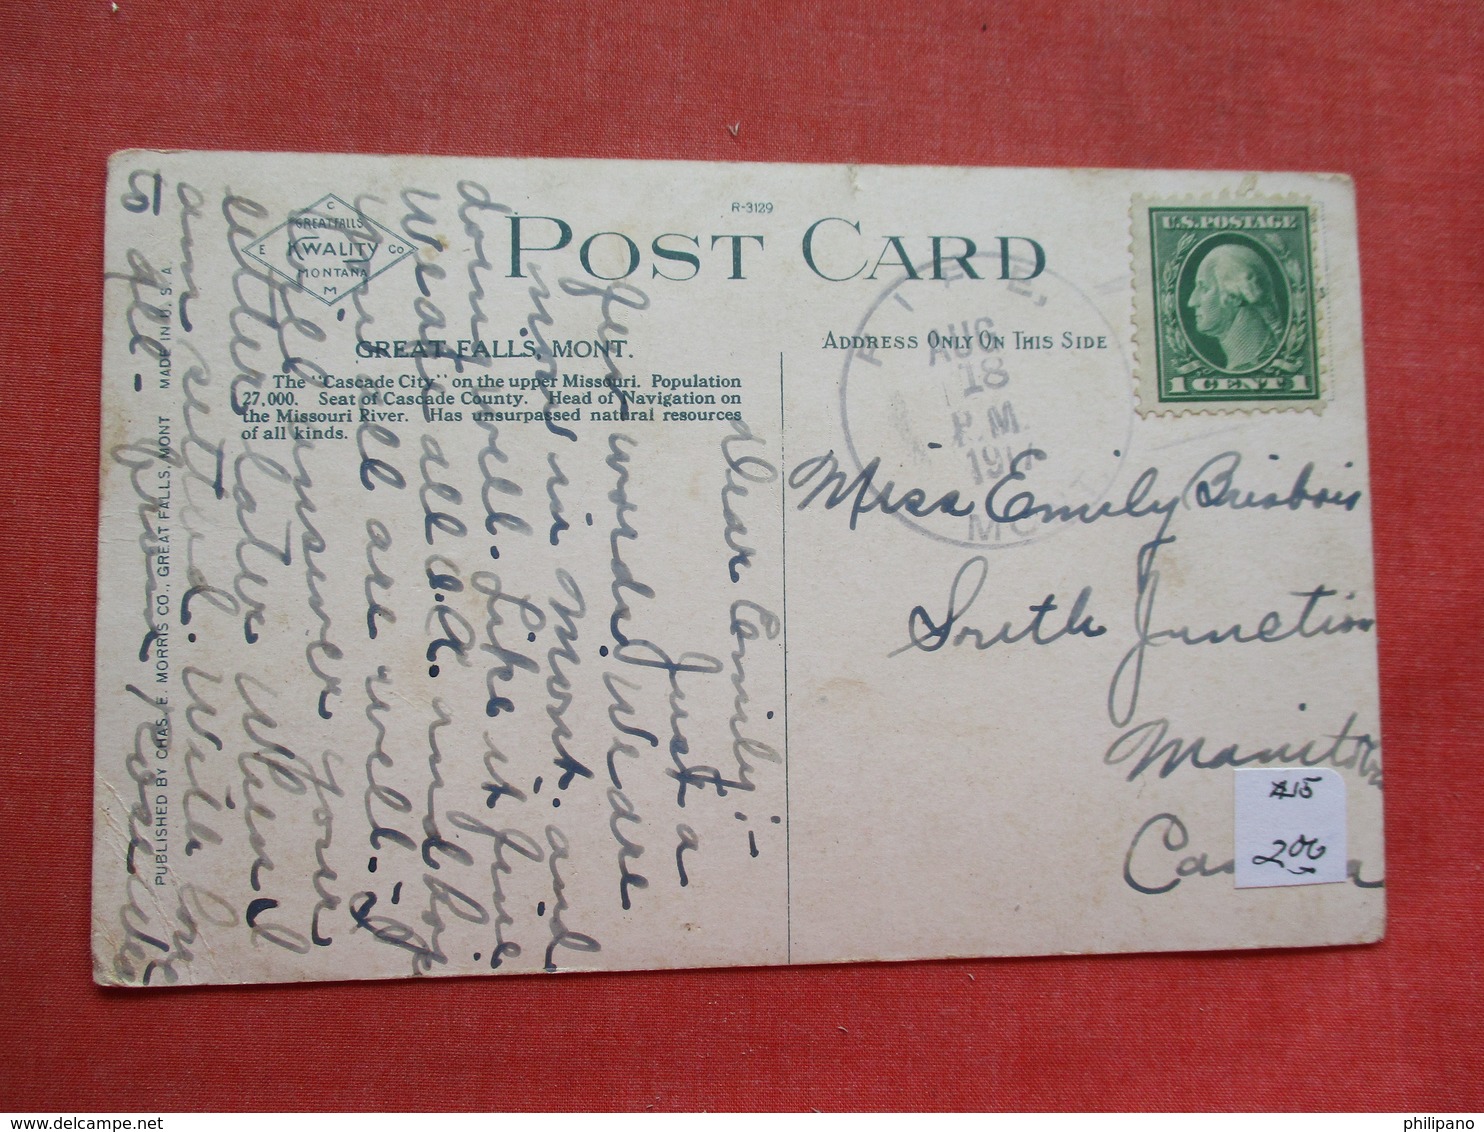 R-3129
C
GREAT FALLS
E KWALITY CO
MONTANA
M
POST CARD
U.S. POSTAGE
1 CENT 1
ADDRESS ONLY ON THIS SIDE
GREAT FALLS, MONT.
The "Cascade City" on the upper Missouri. Population
27,000. Seat of Cascade County. Head of Navigation on
the Missouri River. Has unsurpassed natural resources
of all kinds.
AUG
18
P.M.
MONT
Miss Emily Brisbois
South Junction
Manitoba
Canada
Dear Emily:-
Just a
few words. We are
now in Mont. and
doing well. Like it fine
We are all O.K. and hope
you all are well. I
will answer your
letter later when I
am settled. With love
to all - from
PUBLISHED BY CHAS. E. MORRIS CO., GREAT FALLS, MONT MADE IN U.S.A.
$15
200
www.delcampe.net
philipano